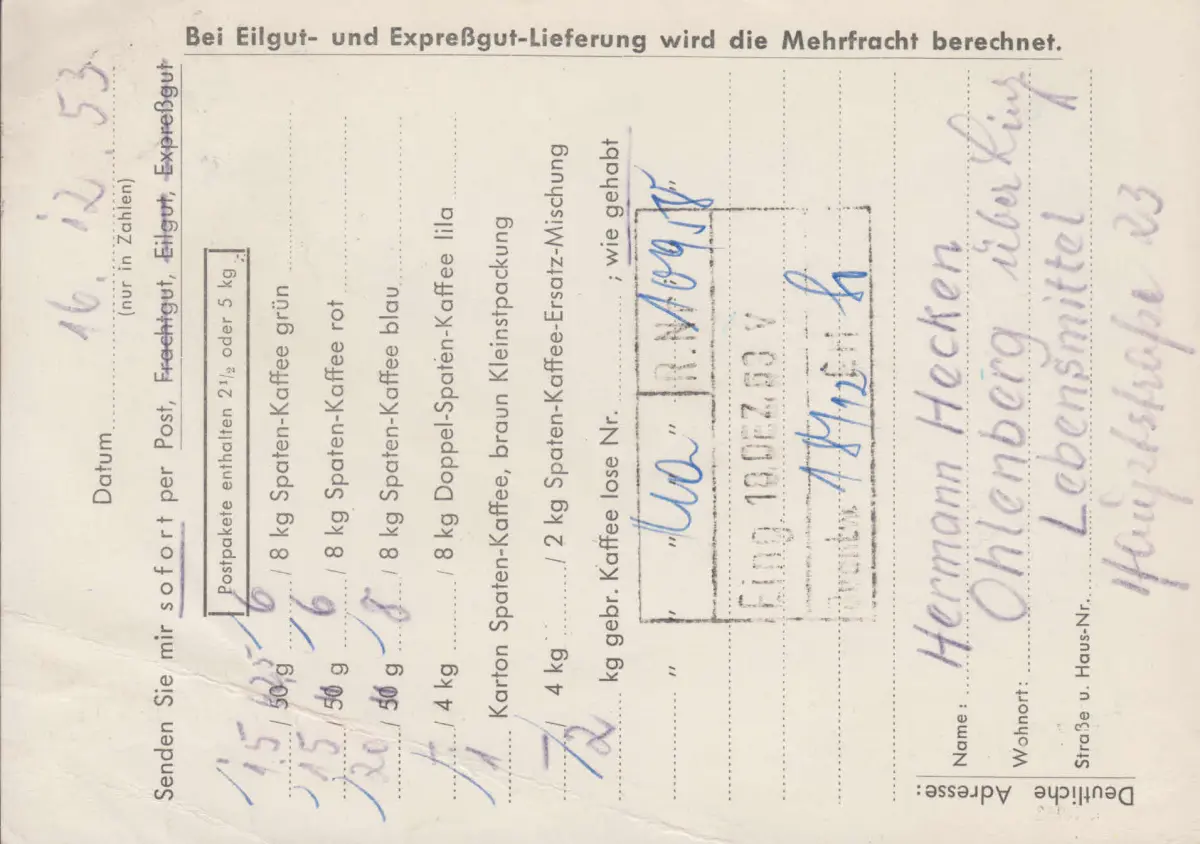 Bei Eilgut- und Expreßgut-Lieferung wird die Mehrfracht berechnet.
Datum 16. 12. 53
(nur in Zahlen)
Senden Sie mir sofort per Post, Frachtgut, Eilgut, Expreßgut
Postpakete enthalten 2 1/2 oder 5 kg
15 / 125 g 6 / 8 kg Spaten-Kaffee grün
15 / g 6 / 8 kg Spaten-Kaffee rot
20 / g 8 / 8 kg Spaten-Kaffee blau
/ 4 kg / 8 kg Doppel-Spaten-Kaffee lila
1 Karton Spaten-Kaffee, braun Kleinstpackung
/ 4 kg / 2 kg Spaten-Kaffee-Ersatz-Mischung
2 kg gebr. Kaffee lose Nr. ; wie gehabt
" " " " "
R.Nr.
Eing. 18.DEZ.53 V
18/12
Deutliche Adresse:
Name: Hermann Hecken
Wohnort: Ohlenberg über Linz
Lebensmittel
Straße u. Haus-Nr. Hauptstraße 23